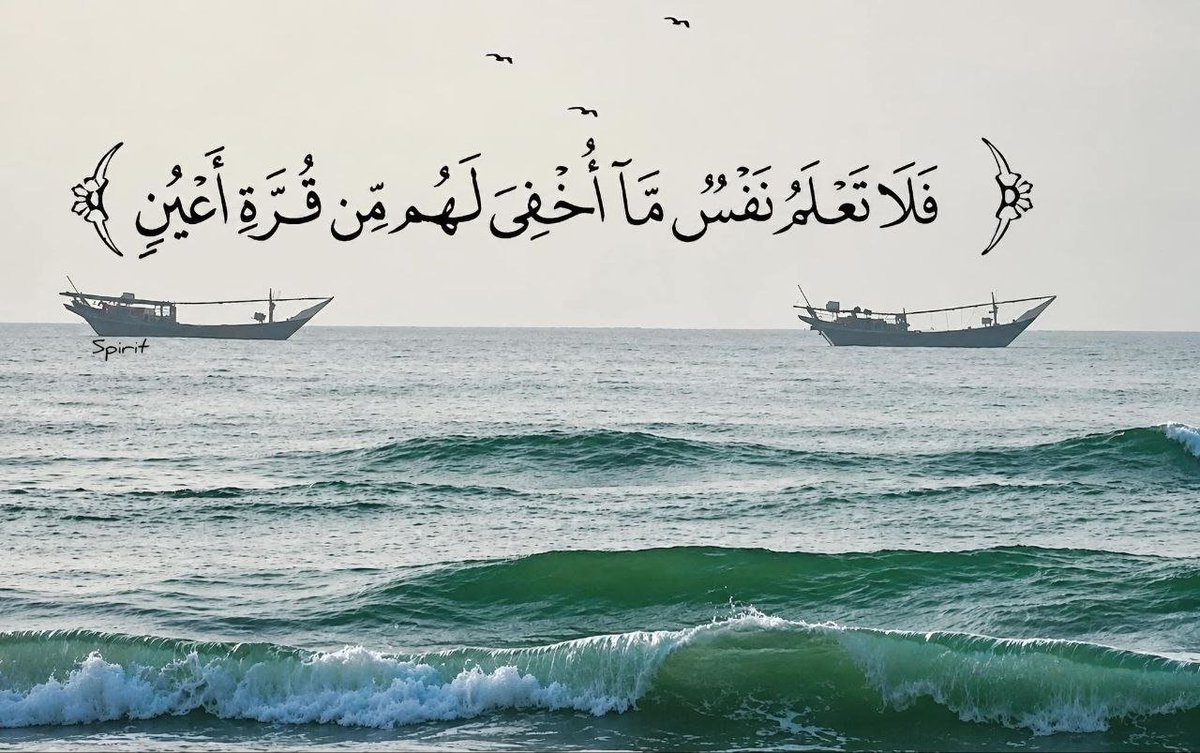 ﴿ فَلَا تَعْلَمُ نَفْسٌ مَّآ أُخْفِىَ لَهُم مِّن قُرَّةِ أَعْيُنٍ ﴾
Spirit